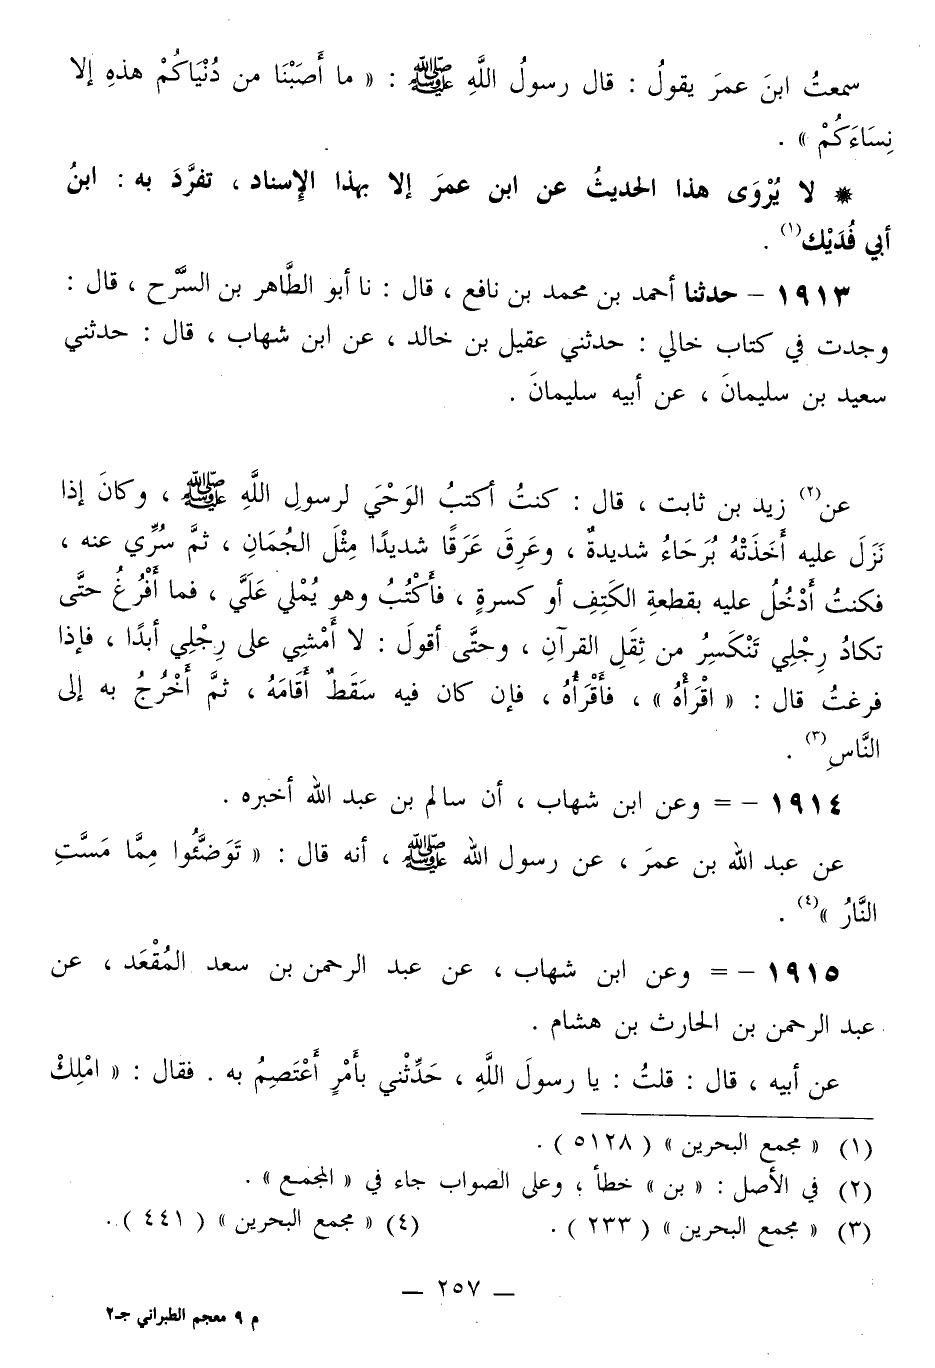 سمعتُ ابنَ عمرَ يقولُ : قال رسولُ اللَّهِ ﷺ : « ما أَصَبْنَا من دُنْيَاكُمْ هذهِ إلا
نِسَاءَكُمْ » .
* لا يُرْوَى هذا الحديثُ عن ابن عمرَ إلا بهذا الإِسناد ، تفرَّدَ به : ابنُ
أبي فُدَيْك(١) .
١٩١٣ - حدثنا أحمد بن محمد بن نافع ، قال : نا أبو الطَّاهر بن السَّرْح ، قال :
وجدت في كتاب خالي : حدثني عقيل بن خالد ، عن ابن شهاب ، قال : حدثني
سعيد بن سليمانَ ، عن أبيه سليمانَ .
عن(٢) زيد بن ثابت ، قال : كنتُ أكتبُ الوَحْيَ لرسولِ اللَّهِ ﷺ ، وكانَ إذا
نَزَلَ عليه أَخَذَتْهُ بُرَحَاءُ شديدةٌ ، وعَرِقَ عَرَقًا شديدًا مِثْلَ الجُمَانِ ، ثمَّ سُرِّي عنه ،
فكنتُ أَدْخُلُ عليه بقطعةِ الكَتِفِ أو كسرةٍ ، فأَكْتُبُ وهو يُمْلي عَلَيَّ ، فما أَفْرُغُ حتَّى
تكادُ رِجْلِي تَنْكَسِرُ من ثِقَلِ القرآنِ ، وحتَّى أقولَ : لا أَمْشِي على رِجْلِي أبدًا ، فإذا
فرغتُ قال : « اقْرَأْهُ » ، فأَقْرَأُهُ ، فإن كان فيه سَقَطٌ أَقَامَهُ ، ثمَّ أَخْرُجُ به إلى
النَّاسِ(٣) .
١٩١٤ - = وعن ابن شهاب ، أن سالم بن عبد الله أخبره .
عن عبد الله بن عمرَ ، عن رسول الله ﷺ ، أنه قال : « تَوَضَّئُوا مِمَّا مَسَّتِ
النَّارُ »(٤) .
١٩١٥ - = وعن ابن شهاب ، عن عبد الرحمن بن سعد المُقْعَد ، عن
عبد الرحمن بن الحارث بن هشام .
عن أبيه ، قال : قلتُ : يا رسولَ اللَّهِ ، حَدِّثْني بأَمْرٍ أَعْتَصِمُ به . فقال : « امْلِكْ
(١) « مجمع البحرين » ( ٥١٢٨ ) .
(٢) في الأصل : « بن » خطأ ؛ وعلى الصواب جاء في « المجمع » .
(٣) « مجمع البحرين » ( ٢٣٣ ) . (٤) « مجمع البحرين » ( ٤٤١ ) .
— ٢٥٧ —
م ٩ معجم الطبراني جـ٢